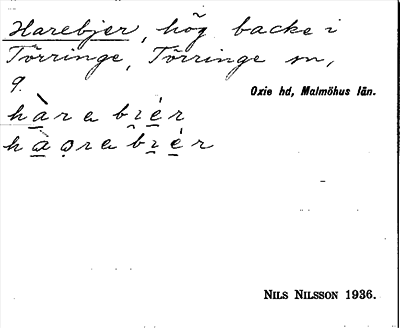 Harebjer, hög backe i
Törringe, Törringe sn,
9.
Oxie hd, Malmöhus län.
hàrabiér
NILS NILSSON 1936.